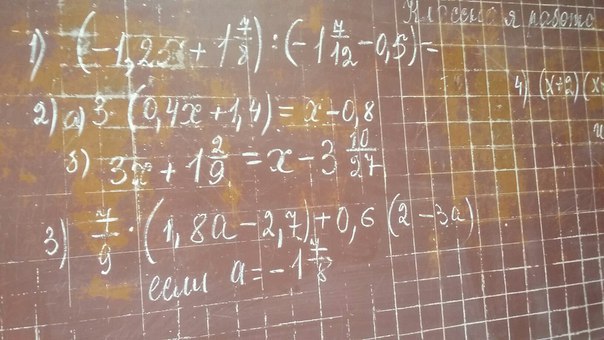 Классная работа
1) (-1,25 + 1 7/8) : (-1 7/12 - 0,5) =
2) а) 3 · (0,4x + 1,4) = x - 0,8
б) 3x + 1 2/9 = x - 3 10/27
3) 7/9 · (1,8a - 2,7) + 0,6 (2 - 3a)
если a = -1 7/8
4) (x+2)(x